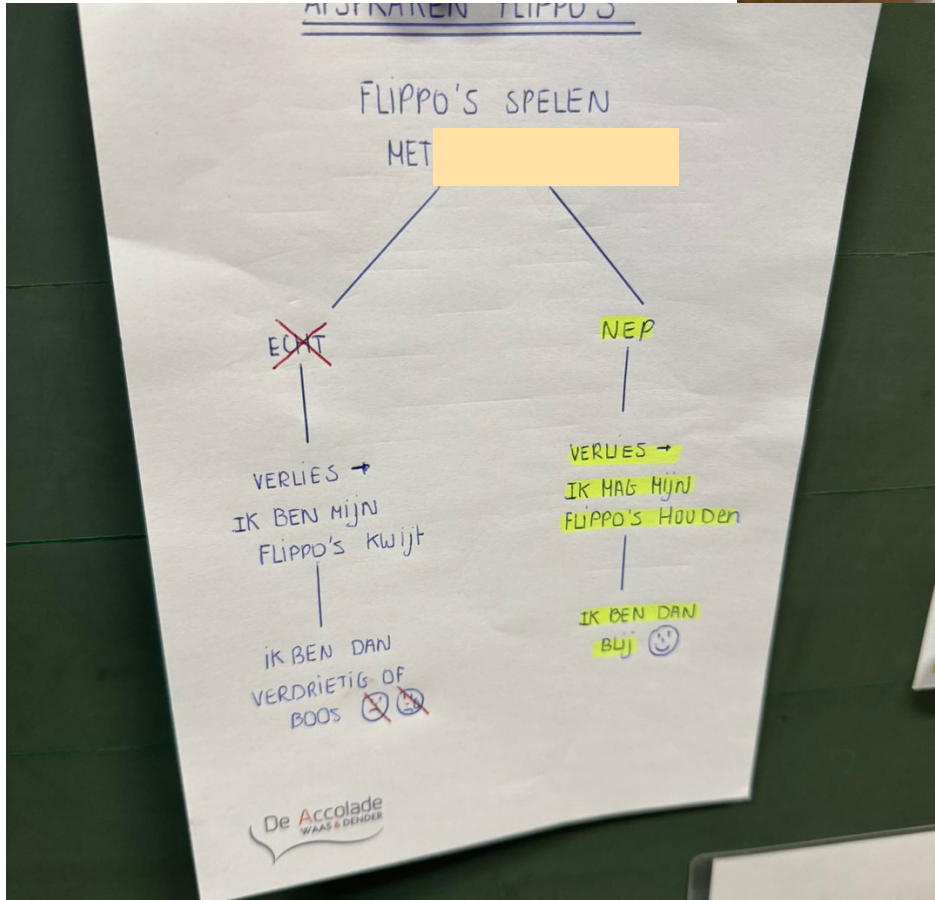 AFSPRAKEN FLIPPO'S
FLIPPO'S SPELEN
MET
ECHT
VERLIES →
IK BEN MIJN
FLIPPO'S KWIJT
IK BEN DAN
VERDRIETIG OF
BOOS
NEP
VERLIES →
IK MAG MIJN
FLIPPO'S HOUDEN
IK BEN DAN
BLIJ
De Accolade
WAAS & DENDER